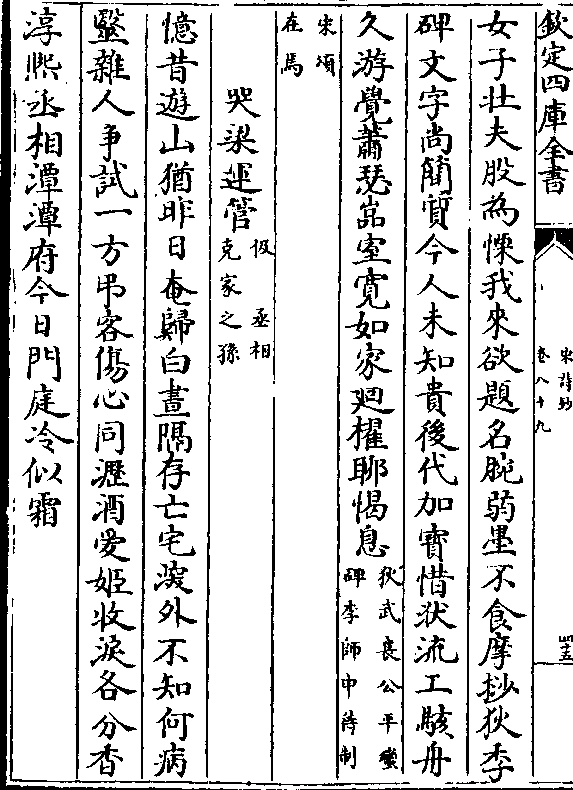 欽定四庫全書
宋詩鈔
卷八十九
四十五
女子壯夫股為慄我來欲題名腕弱墨不食摩挱狄李
碑文字尚簡質今人未知貴後代加寶惜狄流工駭舟
久游覺蕭瑟嵓室寛如家廻櫂聊愒息
狄武㐮公平蠻
碑李師中待制
宋頌
在焉
哭梁運管
伋丞相
克家之孫
憶昔遊山猶昨日奄歸白晝隔存亡宅㴱外不知何病
毉雜人争試一方弔客傷心同瀝酒愛姬收淚各分香
淳熈丞相潭潭府今日門庭冷似霜